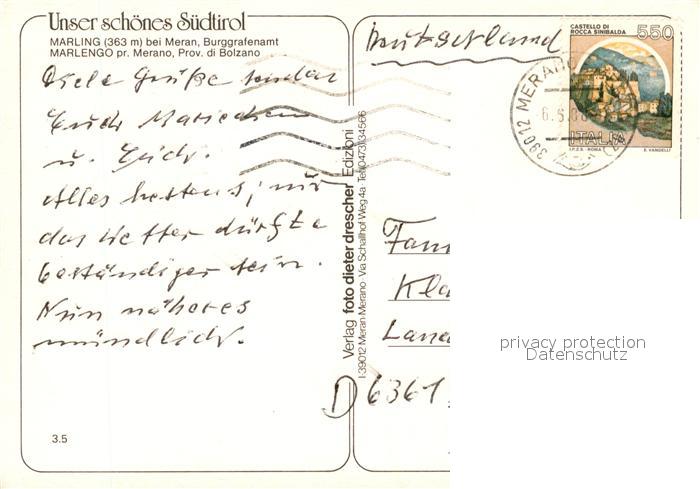 Unser schönes Südtirol
MARLING (363 m) bei Meran, Burggrafenamt
MARLENGO pr. Merano, Prov. di Bolzano
Viele Grüße senden
Euch Mariechen
u. Erich.
Alles bestens; nur
das Wetter dürfte
beständiger sein.
Nun näheres
mündlich.
3.5
Verlag foto dieter drescher Edizioni
I-39012 Meran Merano · Via Schallhof Weg 4a · Tel. 0473/34566
Deutschland
CASTELLO DI
ROCCA SINIBALDA
550
ITALIA
I.P.Z.S. - ROMA
E. VANGELLI
39012 MERANO
Fam
Kla
Land
D 6361
privacy protection
Datenschutz